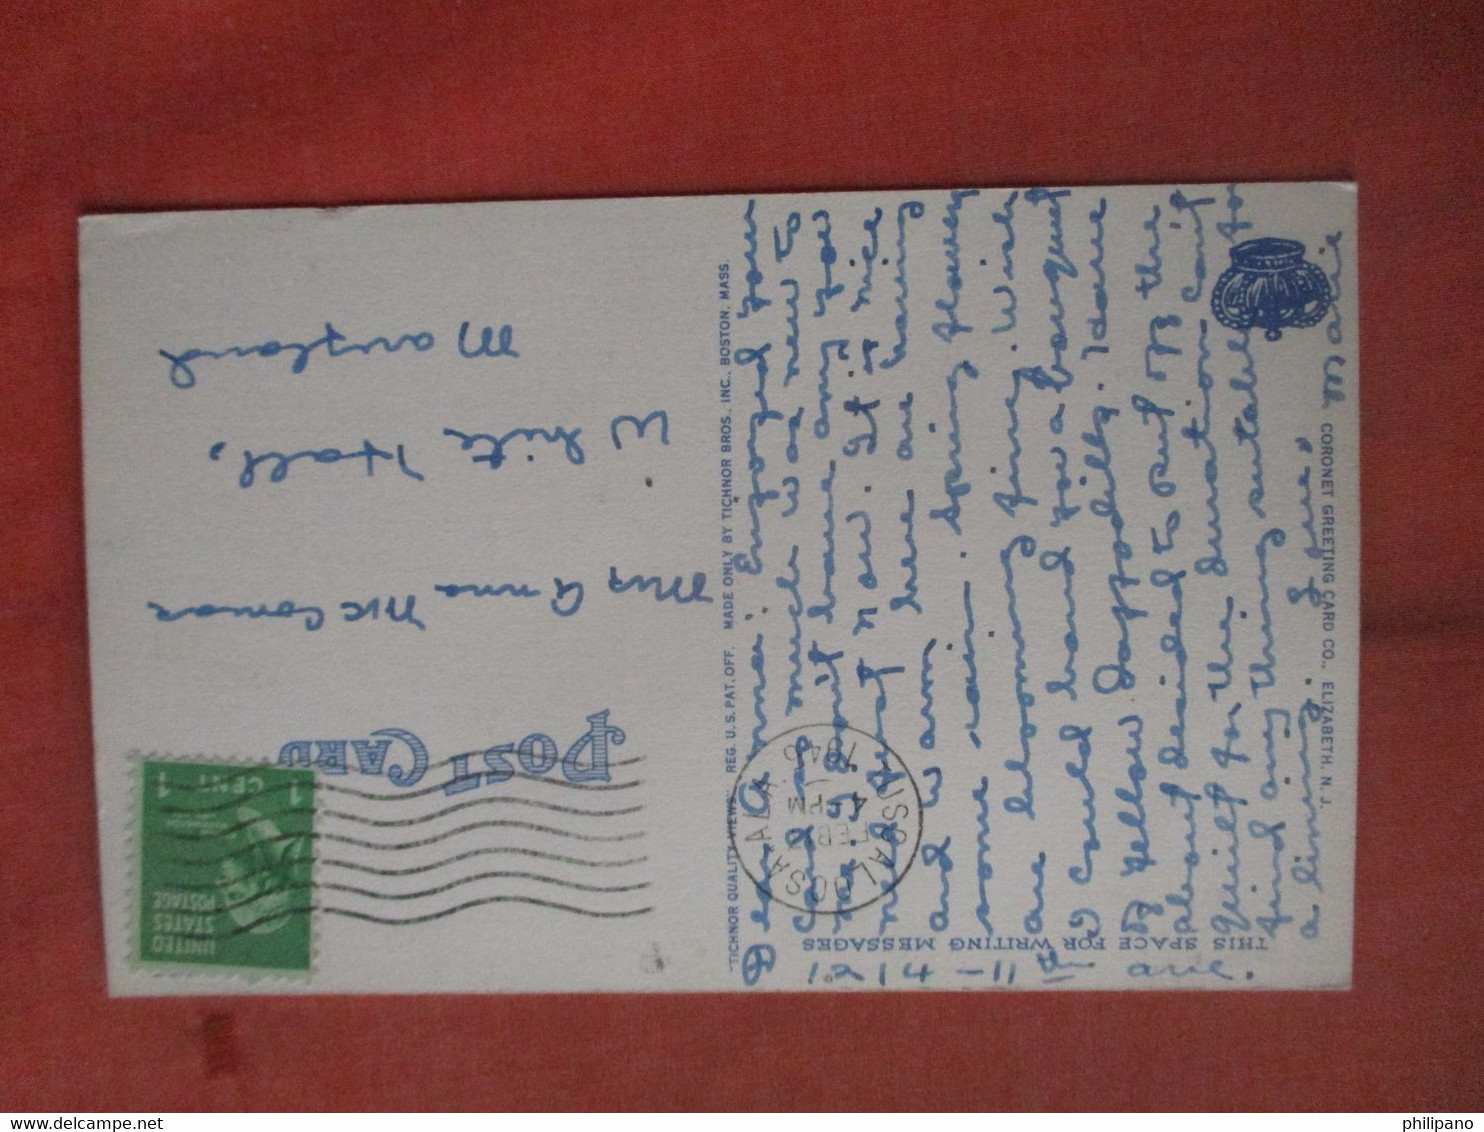 THIS SPACE FOR WRITING MESSAGES
1421-11th ave.
Dear Anna: Enjoyed your
card so much was new to
me. Don't have any you
need just now. It is nice
and warm here are having
some rain. Spring flowers
are blooming fine. Wish
I could hand you a bouquet
of yellow daffodills. have
about decided to put off the
quilt for the duration can't
find any thing sutable for
a lining. Love, Marie
CORONET GREETING CARD CO., ELIZABETH, N. J.
"TICHNOR QUALITY VIEWS" REG. U. S. PAT. OFF. MADE ONLY BY TICHNOR BROS. INC., BOSTON, MASS.
TUSCALOOSA, ALA.
FEB
4 PM
1946
POST CARD
UNITED
STATES
POSTAGE
1 CENT 1
Mrs Anna McComas
White Hall,
Maryland
philipano